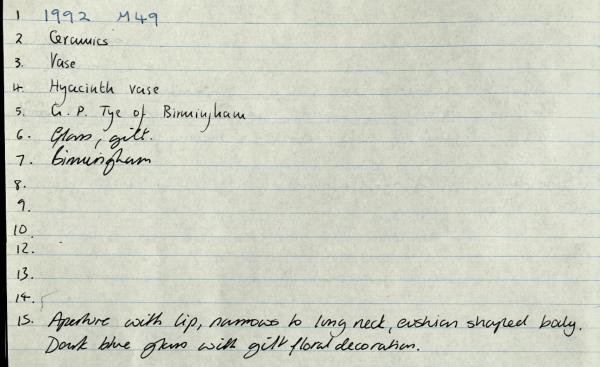 1 1992 M49
2 Ceramics
3. Vase
4. Hyacinth vase
5. G. P. Tye of Birmingham
6. Glass, gilt.
7. Birmingham
8.
9.
10.
12.
13.
14.
15. Aperture with lip, narrows to long neck, cushian shaped body.
Dark blue glass with gilt floral decoration.